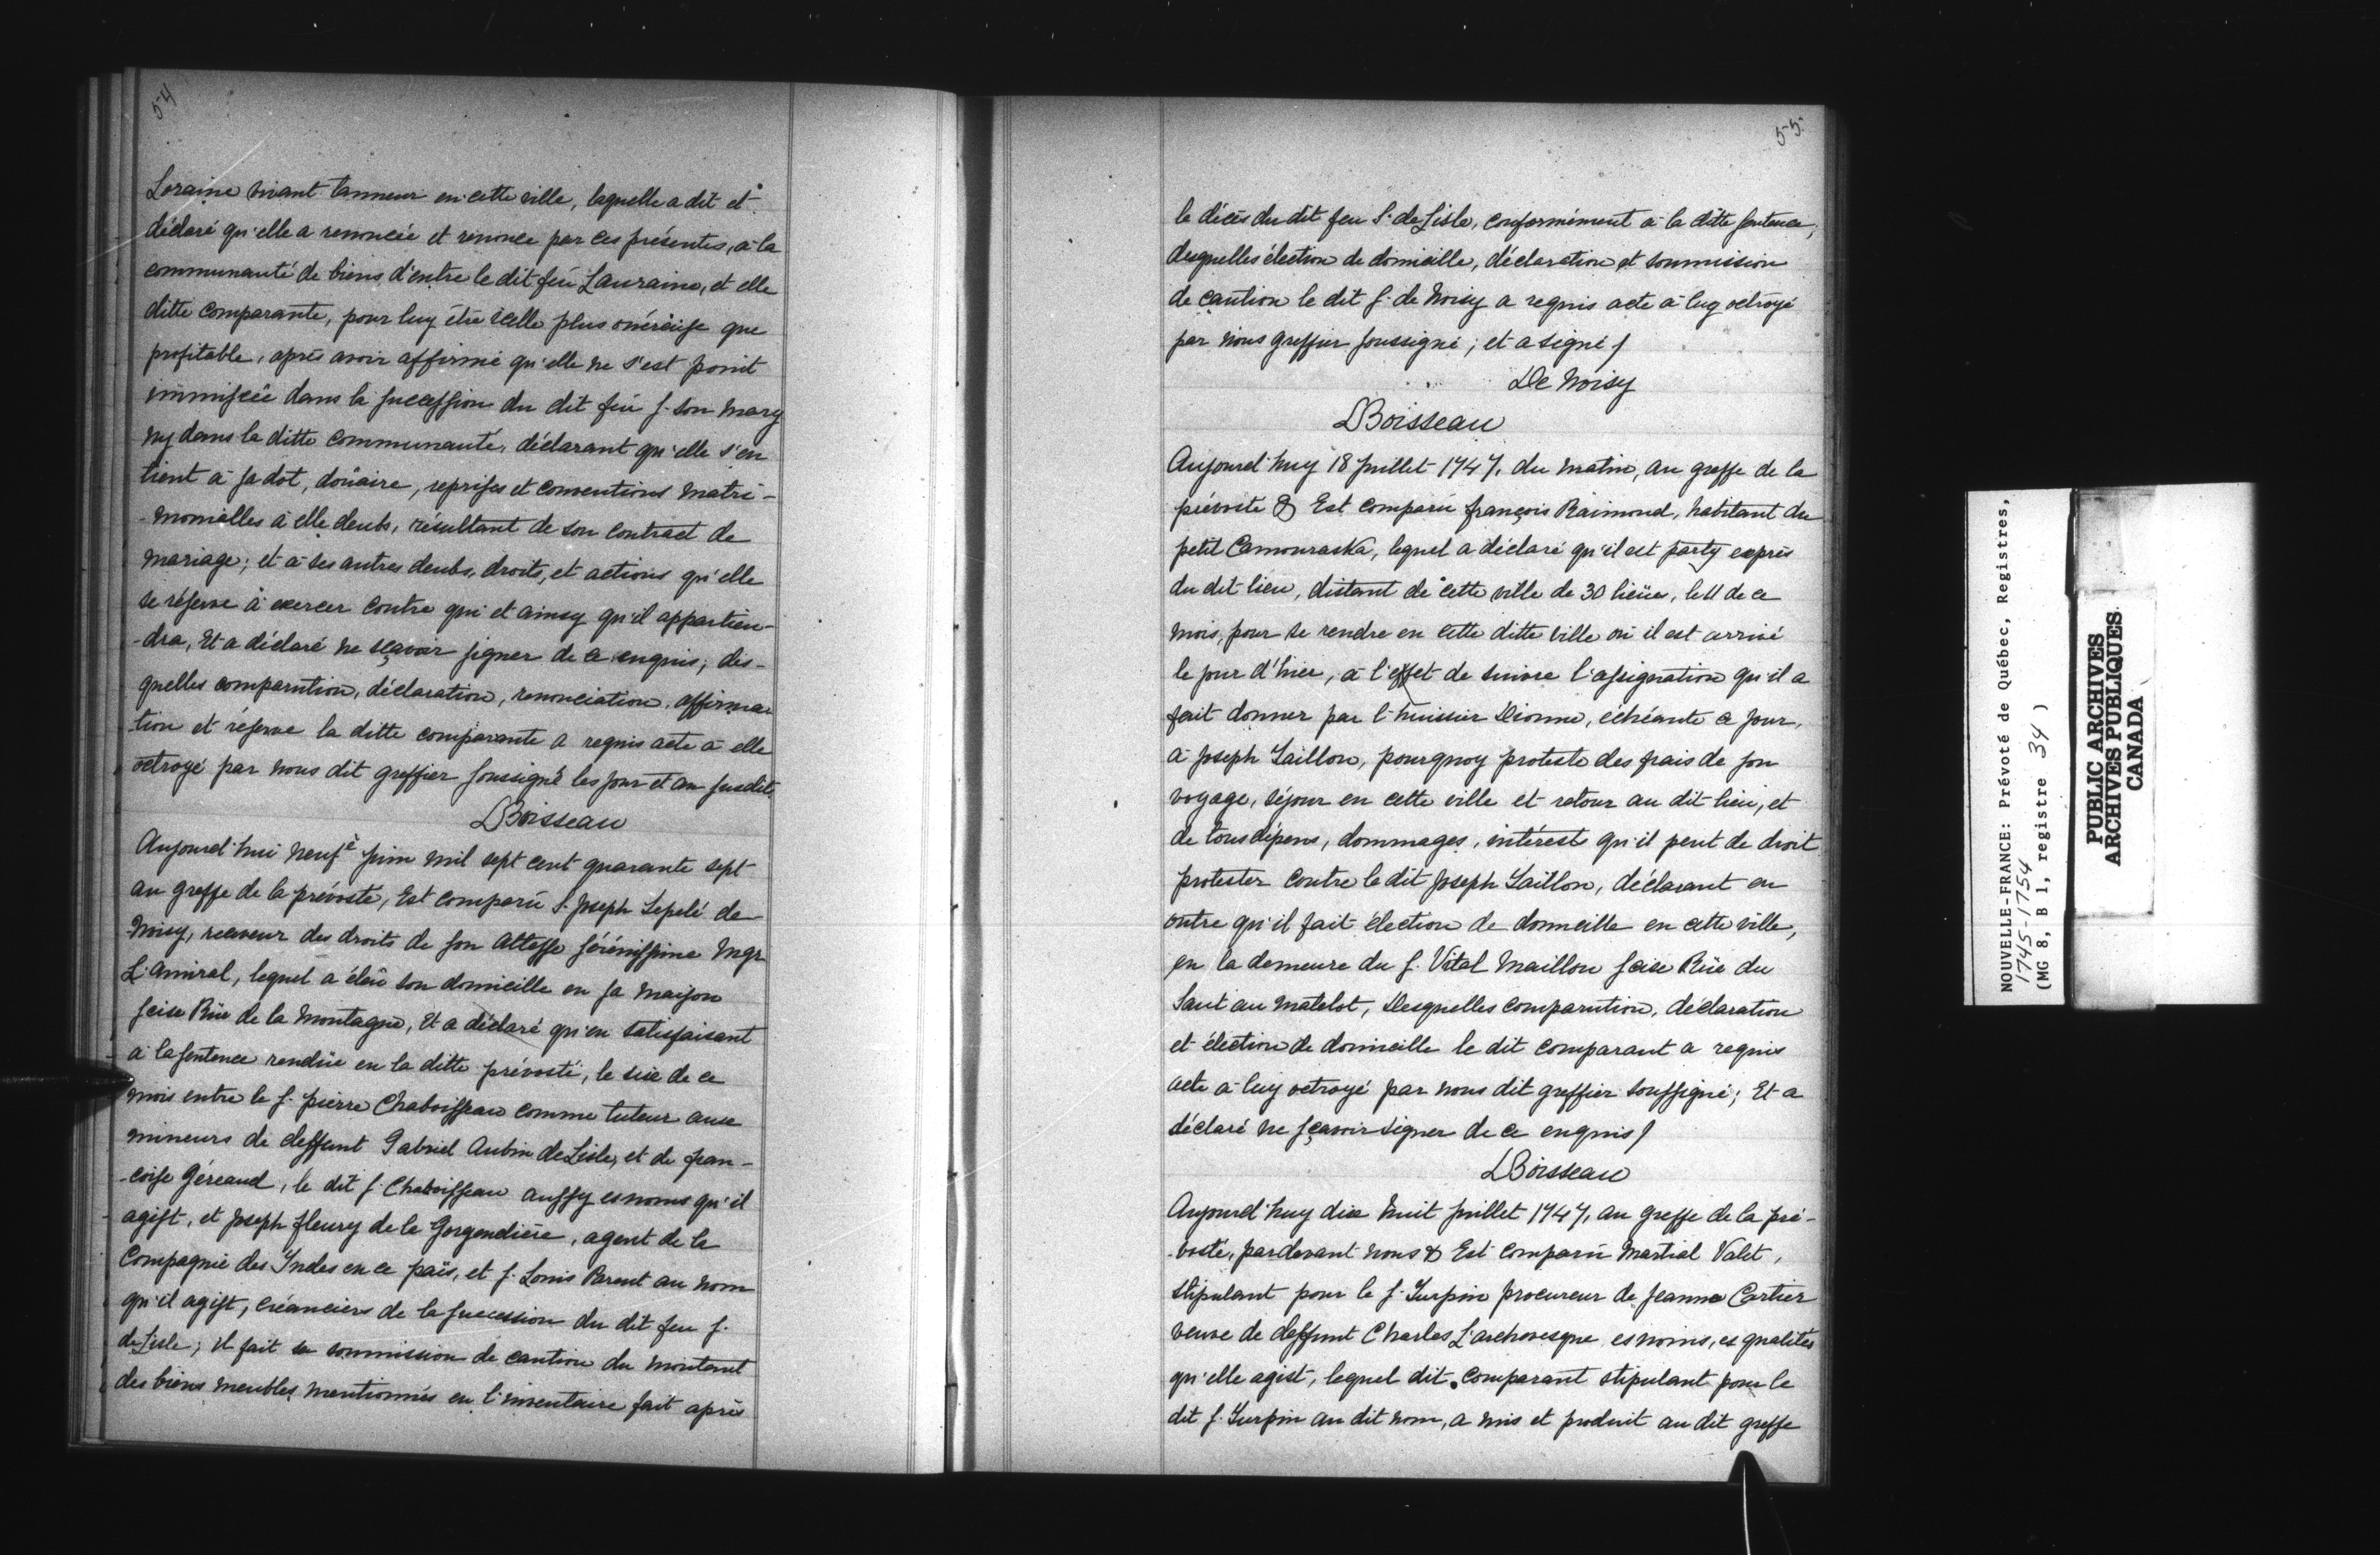 54
Loraine vivant tanneur en cette ville, laquelle a dit et
déclaré qu'elle a renoncée et renonce par ces présentes, à la
communauté de biens d'entre le dit feu Lauraine, et elle
ditte comparante, pour luy être icelle plus onéreuse que
profitable, après avoir affirmé qu'elle ne s'est point
immiscée dans la succession du dit feu s. son mary
ny dans la ditte communauté, déclarant qu'elle s'en
tient à sa dot, douaire, reprises et conventions matri-
-monialles à elle deubs, résultant de son contract de
mariage; et à ses autres deubs, droits, et actions qu'elle
se réserve à exercer contre qui et ainsy qu'il appartien-
-dra, Et a déclaré ne sçavoir signer de ce enquis; des-
quelles comparution, déclaration, renonciation, affirma-
tion et réserve la ditte comparante a requis acte à elle
octroyé par nous dit greffier soussigné les jour et an susdits
Boisseau
Aujourd'hui neufe juin mil sept cent quarante sept
au greffe de la prévosté, Est comparu S. Joseph Lepelé de
Noisy, receveur des droits de son Altesse sérénissime Mgr
L'amiral, lequel a éleü son domicille en sa maison
seise Rüe de la Montagne, Et a déclaré qu'en satisfaisant
à la sentence rendüe en la ditte prévosté, le six de ce
mois entre le s. pierre Chaboisseau comme tuteur aux
mineurs de deffunt Gabriel Aubin deLisle, et de fran-
-coise Géreaud, le dit s. Chaboisseau aussy es noms qu'il
agist, et Joseph fleury de la Gorgendière, agent de la
Compagnie des Indes en ce païs, et s. Louis Parent au nom
qu'il agist, créanciers de la succession du dit feu s.
deLisle; il fait sa soumission de caution du montant
des biens meubles mentionnés en l'inventaire fait après
55.
le décès du dit feu S. de Lisle, conformément à la ditte sentence;
desquelles élection de domicille, déclaration et soumission
de caution le dit s. de Noisy a requis acte à luy octroyé
par nous greffier soussigné; et a signé/
De Noisy
Boisseau
Aujourd'huy 18 juillet 1747, du matin, au greffe de la
prévosté & Est comparu françois Raimond, habitant du
petit Camouraska, lequel a déclaré qu'il est party exprès
du dit lieu, distant de cette ville de 30 lieües, le 11 de ce
mois, pour se rendre en cette ditte ville où il est arrivé
le jour d'hier, à l'effet de suivre l'assignation qu'il a
fait donner par l'huissier Dionne, échéante ce jour,
à Joseph Saillon, pourquoy proteste des frais de son
voyage, séjour en cette ville et retour au dit lieu, et
de tous dépens, dommages, intérests qu'il peut de droit
protester contre le dit Joseph Saillon, déclarant en
outre qu'il fait élection de domicille en cette ville,
en la demeure du s. Vital Maillou seise Rüe du
Saut au matelot, Desquelles comparution, déclaration
et élection de domicille le dit comparant a requis
acte à luy octroyé par nous dit greffier soussigné; Et a
déclaré ne sçavoir signer de ce enquis/
Boisseau
Aujourd'huy dix huit juillet 1747, au greffe de la pré-
-vosté, pardevant nous & Est comparu Martial Valet,
stipulant pour le s. Turpin procureur de Jeanne Cartier
veuve de deffunt Charles L'archevesque es noms, es qualités
qu'elle agist, lequel dit comparant stipulant pour le
dit s. Turpin au dit nom, a mis et produit au dit greffe
NOUVELLE-FRANCE: Prévoté de Québec, Registres,
1745-1754
(MG 8, B 1, registre 34 )
PUBLIC ARCHIVES
ARCHIVES PUBLIQUES
CANADA